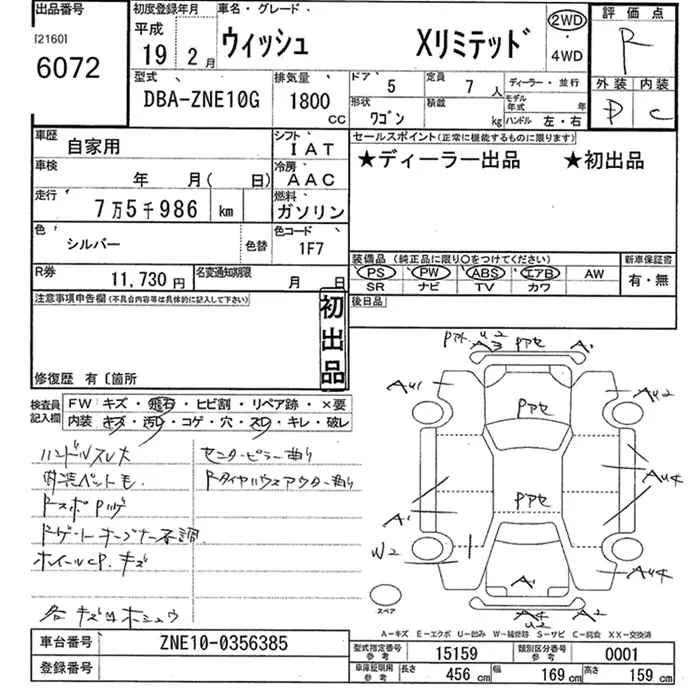 出品番号
[2160]
6072
初度登録年月
平成
19 2月
車名・グレード
ウィッシュ Xリミテッド
2WD
・
4WD
評価点
R
外装 内装
D C
型式
DBA-ZNE10G
排気量
1800
CC
ドア 5
定員 7人
ディーラー・並行
形状
ワゴン
積載 kg
モデル年式 年
ハンドル 左・右
車歴 自家用
シフト
IAT
車検 年 月( 日)
冷房
AAC
走行
7万5千986 km
燃料
ガソリン
色
シルバー
色替
色コード
1F7
R券
11,730円
名変通知期限
月 日
セールスポイント(正常に機能するものに限ります)
★ディーラー出品 ★初出品
装備品(純正品に限り〇をつけてください)
PS PW ABS エアB AW
SR ナビ TV カワ
新車保証書
有・無
後日品
注意事項申告欄(不具合内容等は具体的に記入して下さい)
初出品
修復歴 有 〔箇所
検査員記入欄
FW キズ・飛石・ヒビ割・リペア跡・×要
内装 キズ・汚レ・コゲ・穴・スレ・キレ・破レ
ハンドルスレ大
センターピラー曲り
内装ペットモ.
Rタイヤハウスアウター曲り
ドゲートオープナー不調
ホイールCP.キズ
各キズ凹
U2
A3 Pアセ A1
AU1
AU2
Pアセ
Pアセ
AU4
A1
W2
AU4
A1
スペア
A4
U2
A2
A-キズ E-エクボ U-凹み W-補修跡 S-サビ C-腐食 XX-交換済
車台番号 ZNE10-0356385
登録番号
型式指定番号
参考
15159
類別区分番号
参考
0001
車庫証明用
参考
長さ 456cm 幅 169cm 高さ 159cm